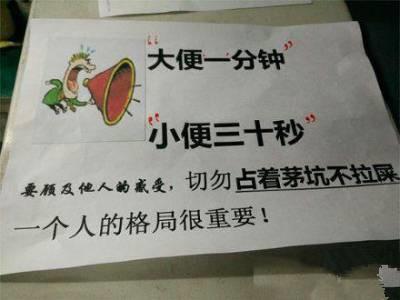 “大便一分钟”
“小便三十秒”
要顾及他人的感受，切勿占着茅坑不拉屎
一个人的格局很重要！